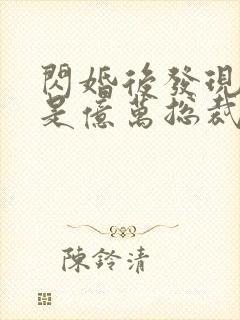 閃婚後發現
是億萬總裁
陳鈴清